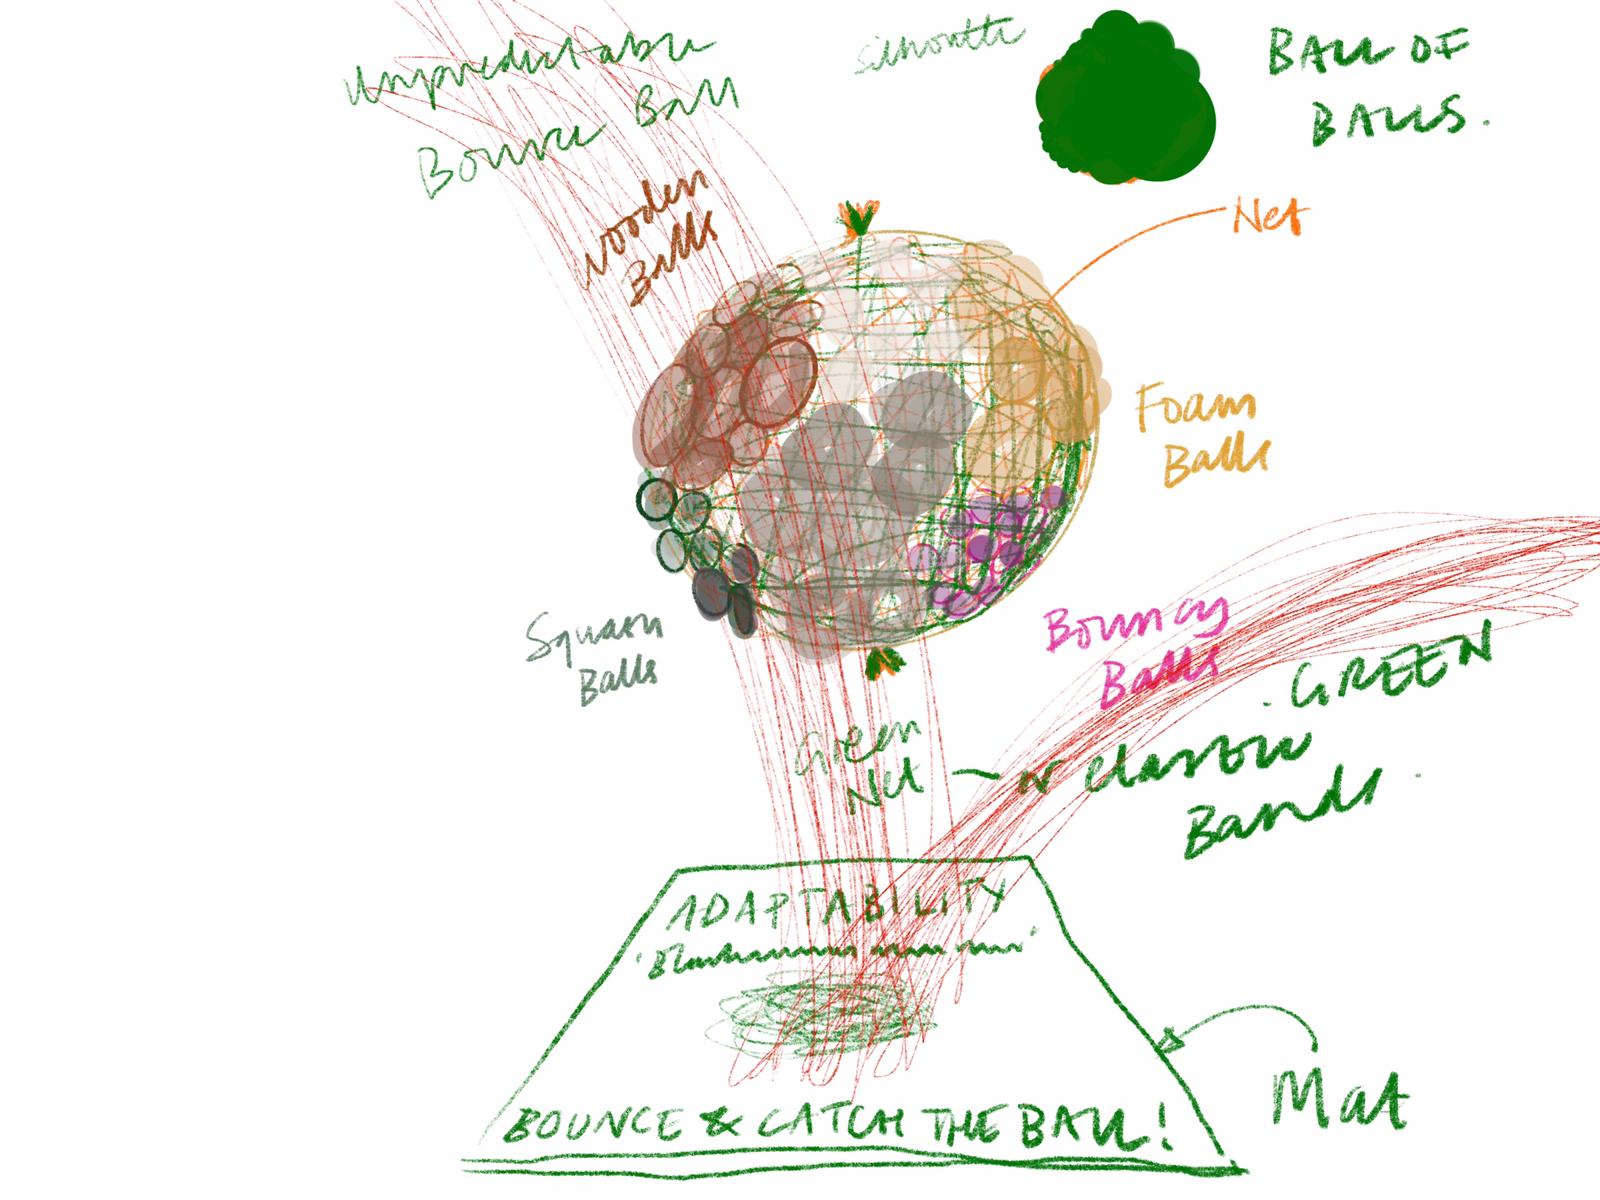 Unpredictable
Bounce Ball
Silhoutte
BALL OF
BALLS.
Wooden
Balls
Net
Foam
Balls
Squash
Balls
Bouncy
Balls
GREEN
Green
Net
or elastic
Bands.
ADAPTABILITY
BOUNCE & CATCH THE BALL!
Mat